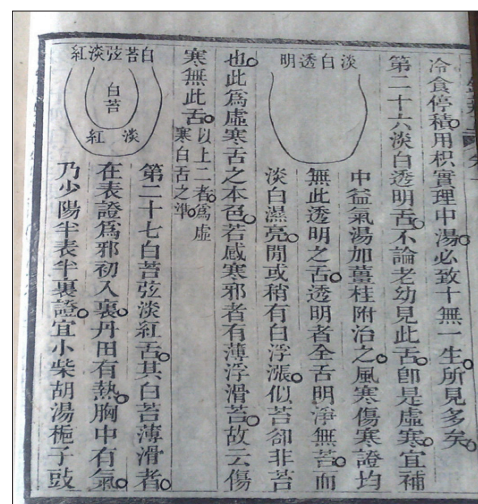 冷食停積用枳實理中湯必致十無一生所見多矣
第二十六淡白透明舌不論老幼見此舌卽是虛寒宜補
淡白透明
中益氣湯加薑桂附治之風寒傷寒證均
無此透明之舌透明者全舌明淨無苔而
淡白濕亮間或稍有白浮漲似苔卻非苔
也此爲虛寒舌之本色若感寒邪者有薄浮滑苔故云傷
寒無此舌以上二者爲虛
寒白舌之準
白苔弦淡紅
白苔
淡紅
第二十七白苔弦淡紅舌其白苔薄滑者
在表證爲邪初入裏丹田有熱胸中有氣
乃少陽半表半裏證宜小柴胡湯梔子豉